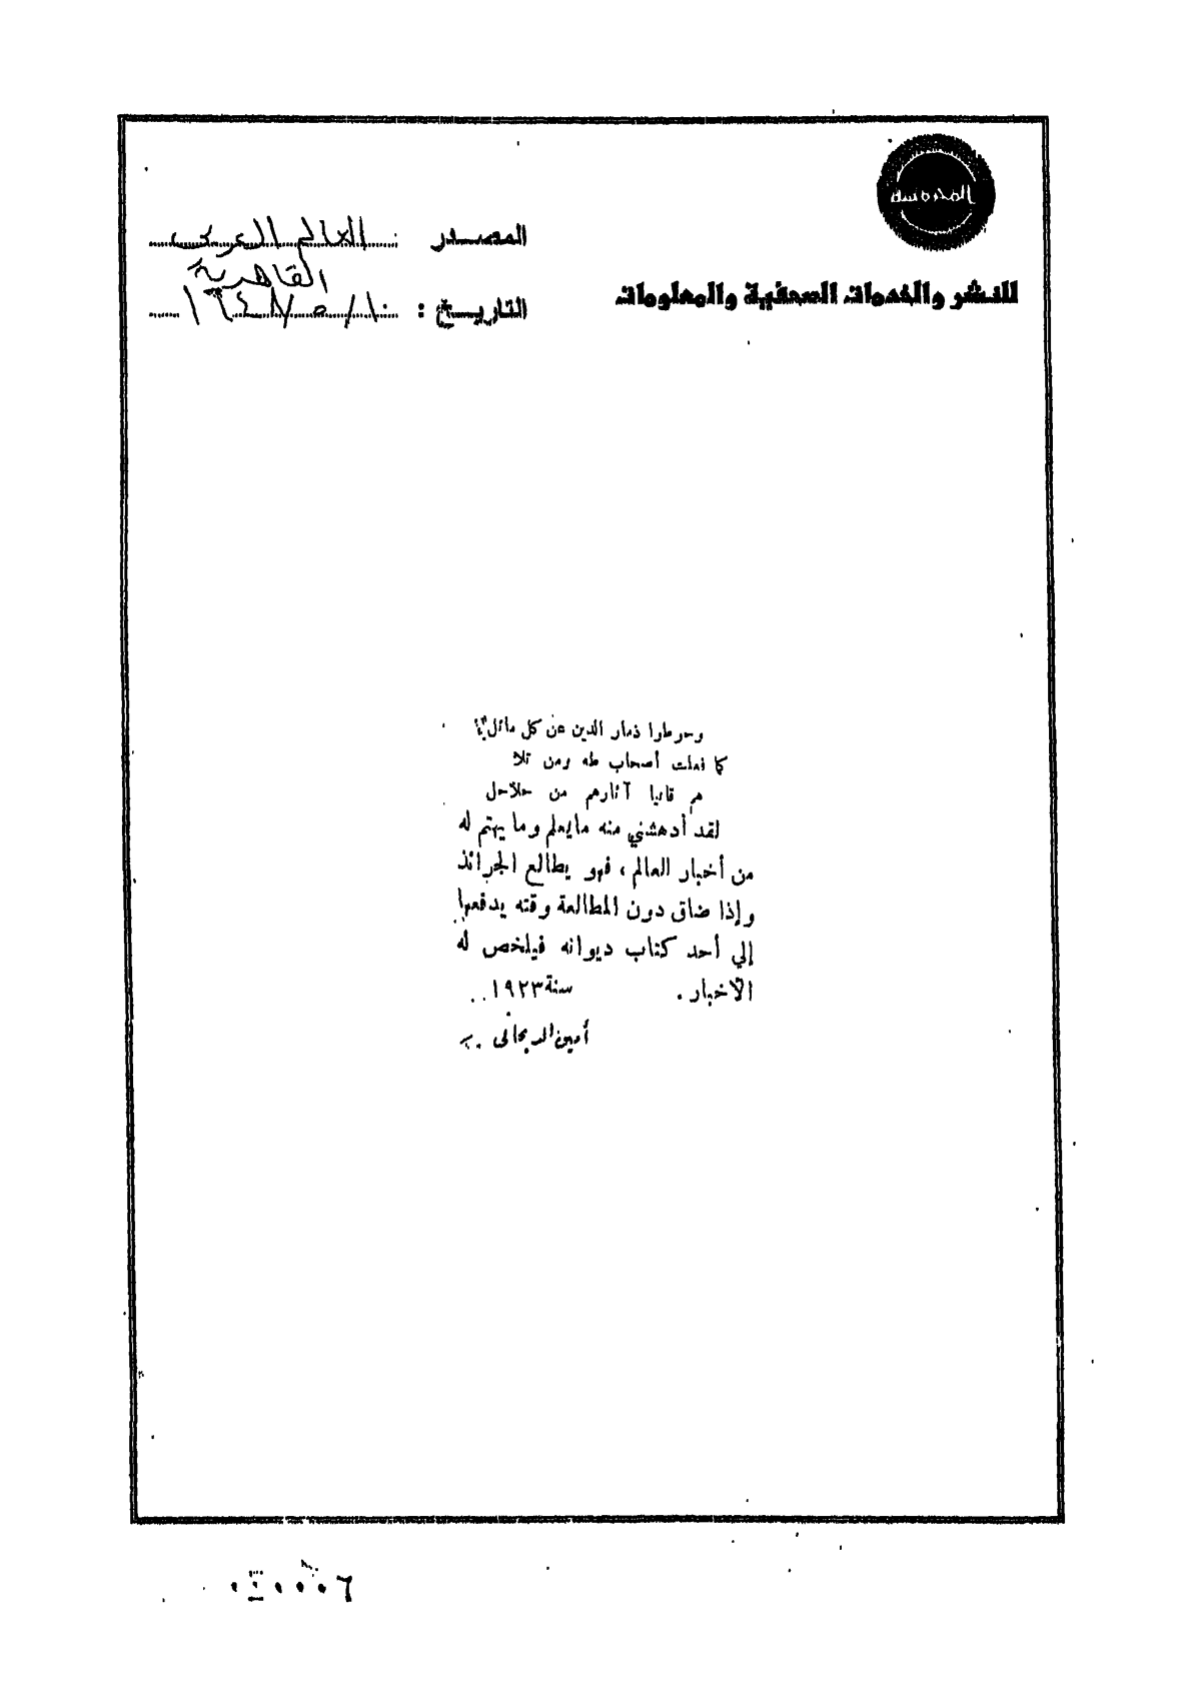 المحروسة
للنشر والخدمات الصحفية والمعلومات
المصدر العالم العربي
القاهرية
التاريخ : ١٠/٥/١٩٤٨
وحوطوا ذمار الدين عن كل مائل
كما فعلت أصحاب طه ومن تلا
هم قافيا آثارهم من حلاحل
لقد أدهشني منه مايعلم وما يهتم له
من أخبار العالم ، فهو يطالع الجرائد
وإذا ضاق دون المطالعة وقته يدفعها
إلي أحد كتاب ديوانه فيلخص له
الأخبار . سنة ١٩٢٣ ..
أمين الريحاني